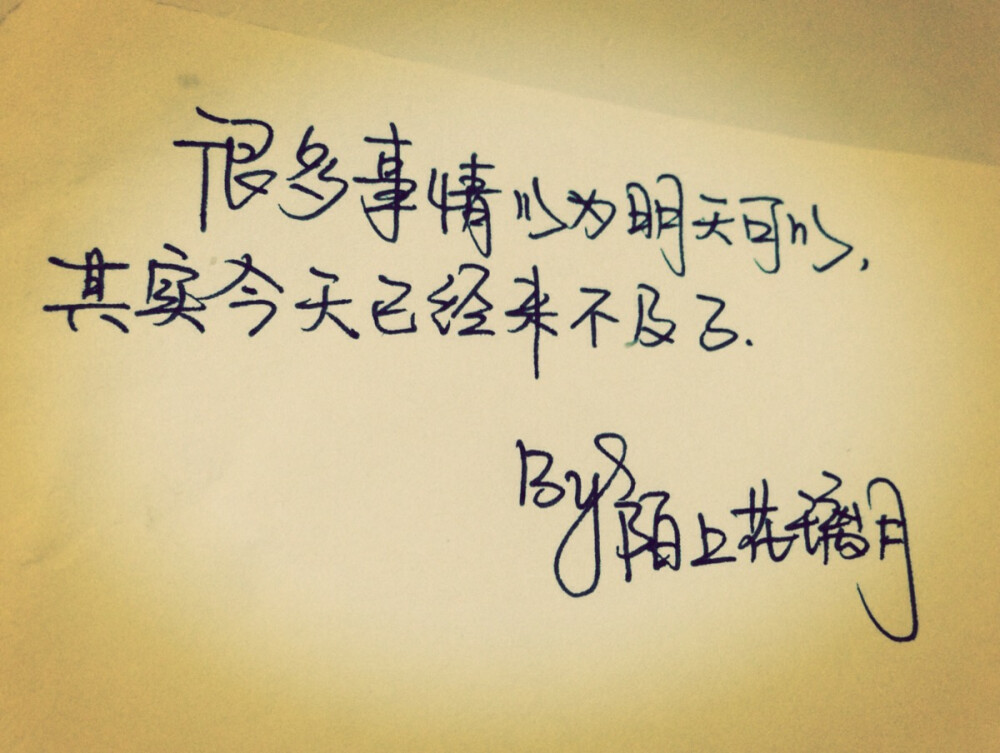 很多事情以为明天可以,
其实今天已经来不及了.
By 陌上花璃月